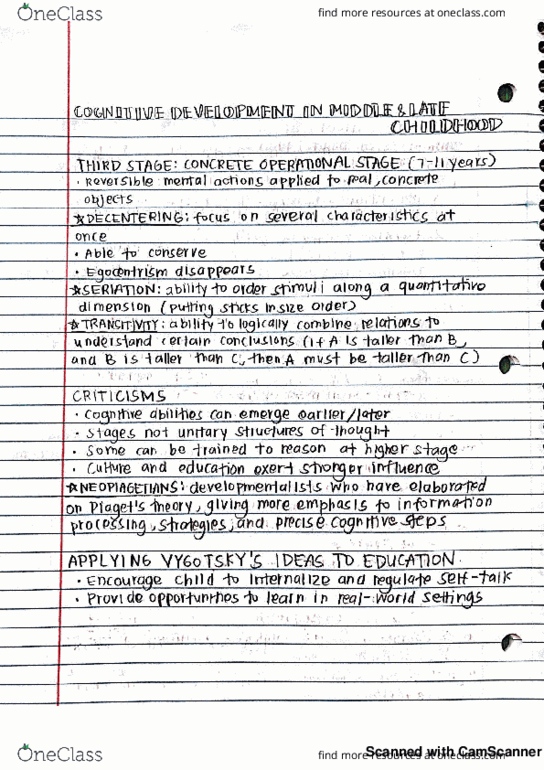 OneClass
find more resources at oneclass.com
COGNITIVE DEVELOPMENT IN MIDDLE & LATE
CHILDHOOD
THIRD STAGE: CONCRETE OPERATIONAL STAGE (7-11 years)
· Reversible mental actions applied to real, concrete
objects
★DECENTERING: focus on several characteristics at
once
· Able to conserve
· Egocentrism disappears
★SERIATION: ability to order stimuli along a quantitative
dimension (putting sticks in size order)
★TRANSITIVITY: ability to logically combine relations to
understand certain conclusions (if A is taller than B,
and B is taller than C, then A must be taller than C)
CRITICISMS
· Cognitive abilities can emerge earlier/later
· Stages not unitary structures of thought
· Some can be trained to reason at higher stage
· Culture and education exert stronger influence
★NEOPIAGETIANS: developmentalists who have elaborated
on Piaget's theory, giving more emphasis to information
processing, strategies, and precise cognitive steps
APPLYING VYGOTSKY'S IDEAS TO EDUCATION
· Encourage child to internalize and regulate self-talk
· Provide opportunities to learn in real-world settings
OneClass
find more resources at oneclass.com
Scanned with CamScanner